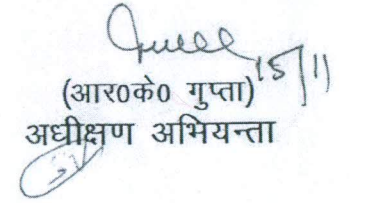 15/11
(आर0के0 गुप्ता)
अधीक्षण अभियन्ता